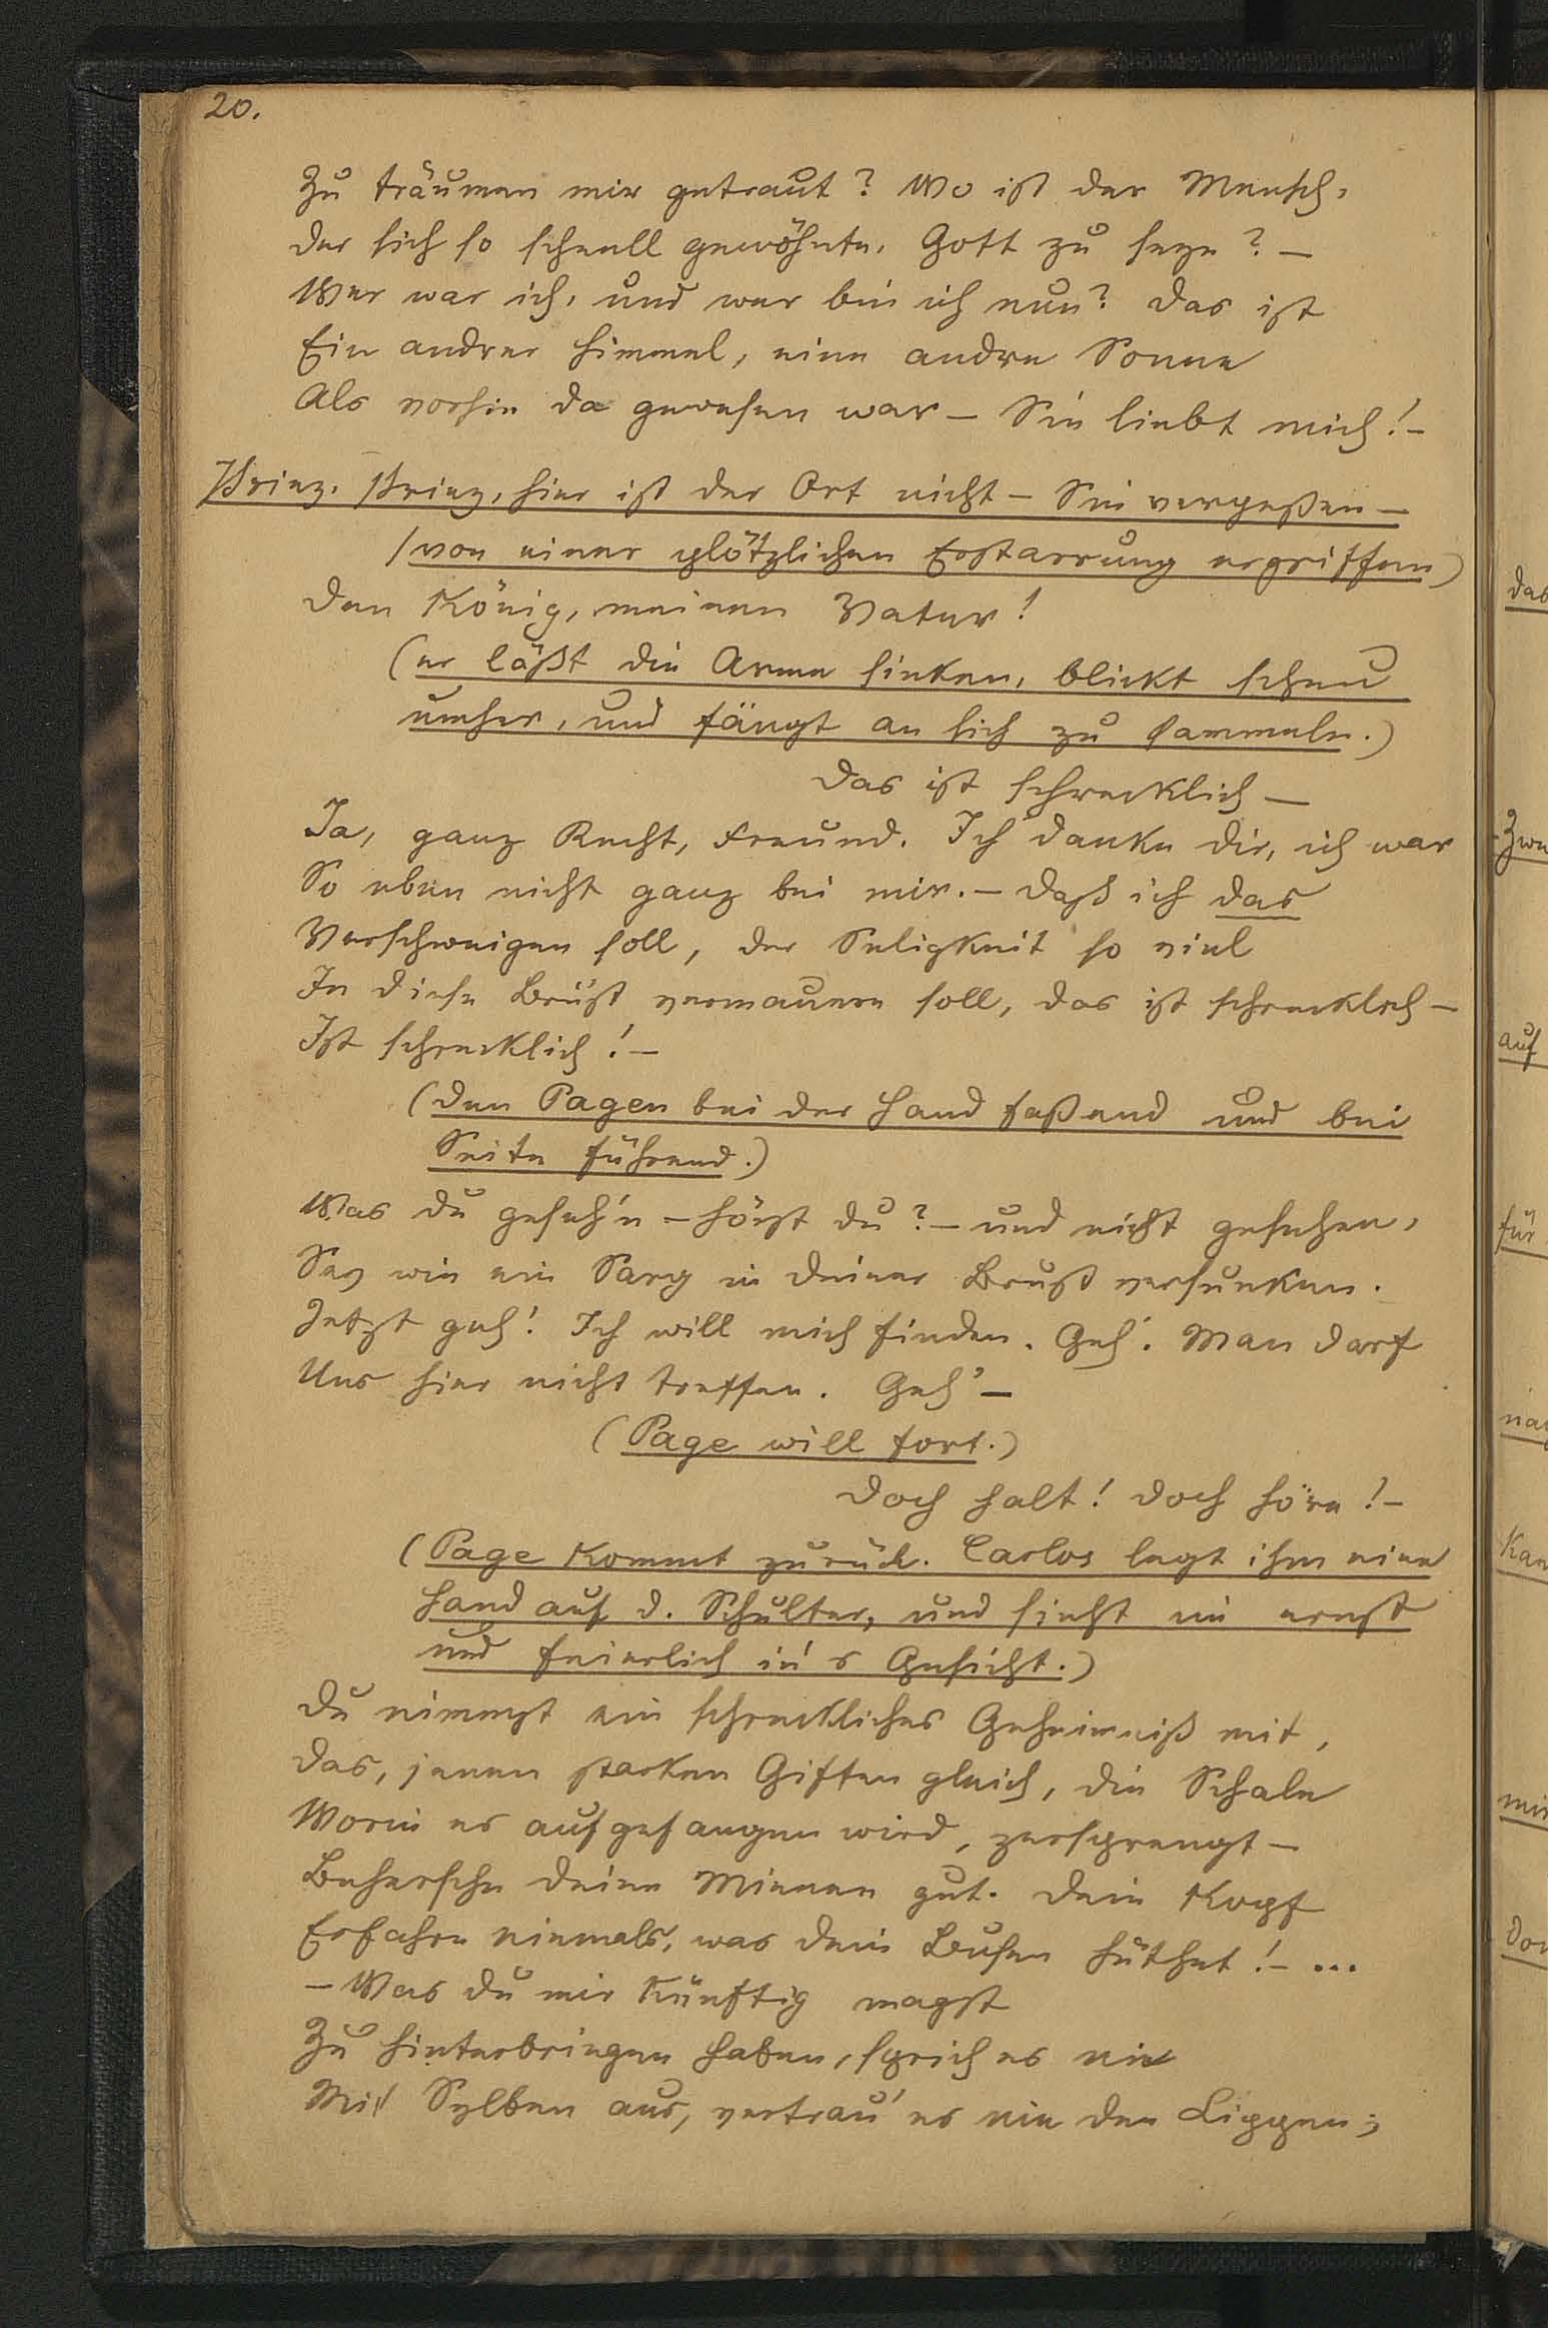 20.
Zu träumen mir getraut? Wo ist der Mensch,
der sich so schnell gewöhnte, Gott zu seyn? —
Wer war ich, und wer bin ich nun? Das ist
Ein andrer Himmel, eine andre Sonne
Als vorhin da gewesen war — Sie liebt mich! —
Prinz, Prinz, hier ist der Ort nicht — Sie vergeßen —
(von einer plötzlichen Erstarrung ergriffen)
Den König, meinen Vater!
(er läßt die Arme sinken, blickt scheu
umher, und fängt an sich zu sammeln.)
Das ist schrecklich —
Ja, ganz Recht, Freund. Ich danke dir, ich war
So eben nicht ganz bei mir. — Daß ich das
Verschweigen soll, der Seligkeit so viel
In diese Brust vermauern soll, das ist schrecklich —
Ist schrecklich! —
(den Pagen bei der Hand faßend und bei
Seite führend.)
Was du geseh'n — hörst du? — und nicht gesehen,
Sey wie ein Sarg in deiner Brust versunken.
Jetzt geh! Ich will mich finden. Geh'. Man darf
Uns hier nicht treffen. Geh' —
(Page will fort.)
Doch halt! Doch höre! —
(Page kommt zurück. Carlos legt ihm eine
Hand auf d. Schulter, und sieht im ernst
und feierlich in's Gesicht.)
Du nimmst ein schreckliches Geheimniß mit,
Das, jenen starken Giften gleich, die Schale
Worin es aufgefangen wird, zersprengt —
Behersche deine Mienen gut. Dein Kopf
Erfahre niemals, was dein Busen hüthet! — ...
— Was du mir künftig magst
Zu hinterbringen haben, sprich es nie
Mit Sylben aus, vertrau' es nie den Lippen;
das
Zwe
auf
für
kan
mir